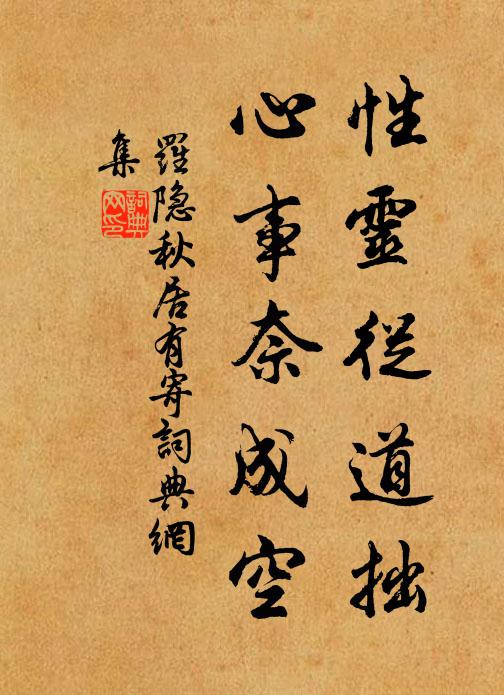 性靈從道拙
心事奈成空
羅隐秋居有寄詞典網
集
詞典
网印